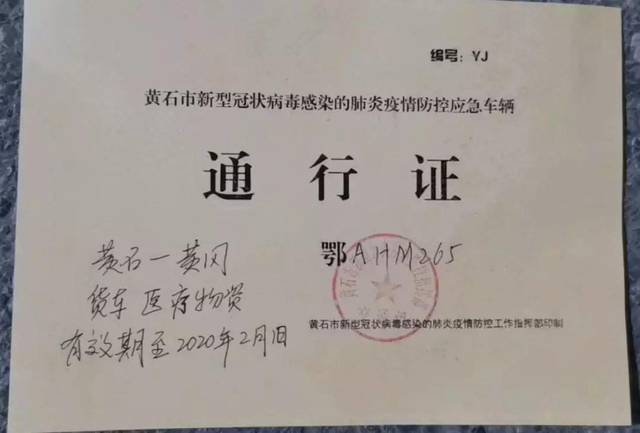 编号: YJ
黄石市新型冠状病毒感染的肺炎疫情防控应急车辆
通行证
鄂AHM265
黄石一黄冈
货车 医疗物资
有效期至2020年2月1日
黄石市新型冠状病毒感染的肺炎疫情防控工作指挥部印制